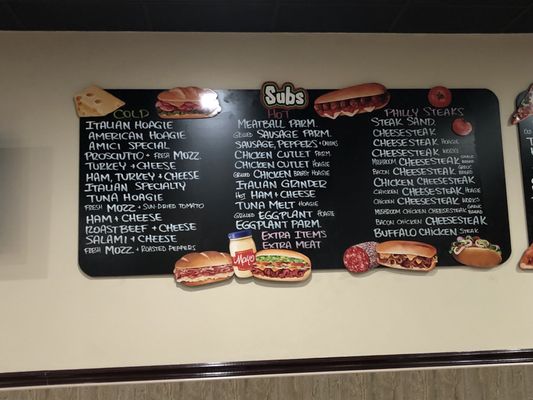 Subs
COLD
ITALIAN HOAGIE
AMERICAN HOAGIE
AMICI SPECIAL
PROSCIUTTO + FRESH MOZZ.
TURKEY + CHEESE
HAM, TURKEY + CHEESE
ITALIAN SPECIALTY
TUNA HOAGIE
FRESH MOZZ + SUN-DRIED TOMATO
HAM & CHEESE
ROAST BEEF & CHEESE
SALAMI & CHEESE
FRESH MOZZ. + ROASTED PEPPERS
HOT
MEATBALL PARM.
GRILLED SAUSAGE PARM.
SAUSAGE, PEPPERS + ONIONS
CHICKEN CUTLET PARM
CHICKEN CUTLET HOAGIE
GRILLED CHICKEN BREAST HOAGIE
ITALIAN GRINDER
HOT HAM & CHEESE
TUNA MELT HOAGIE
GRILLED EGGPLANT HOAGIE
EGGPLANT PARM.
EXTRA ITEMS
EXTRA MEAT
Mayo
PHILLY STEAKS
STEAK SAND.
CHEESESTEAK
CHEESESTEAK HOAGIE
CHEESESTEAK WORKS
MUSHROOM CHEESESTEAK GARLIC BREAD
BACON CHEESESTEAK HOAGIE
CHICKEN CHEESESTEAK
CHICKEN CHEESESTEAK HOAGIE
CHICKEN CHEESESTEAK WORKS
MUSHROOM CHICKEN CHEESESTEAK GARLIC BREAD
BACON CHICKEN CHEESESTEAK
BUFFALO CHICKEN STEAK